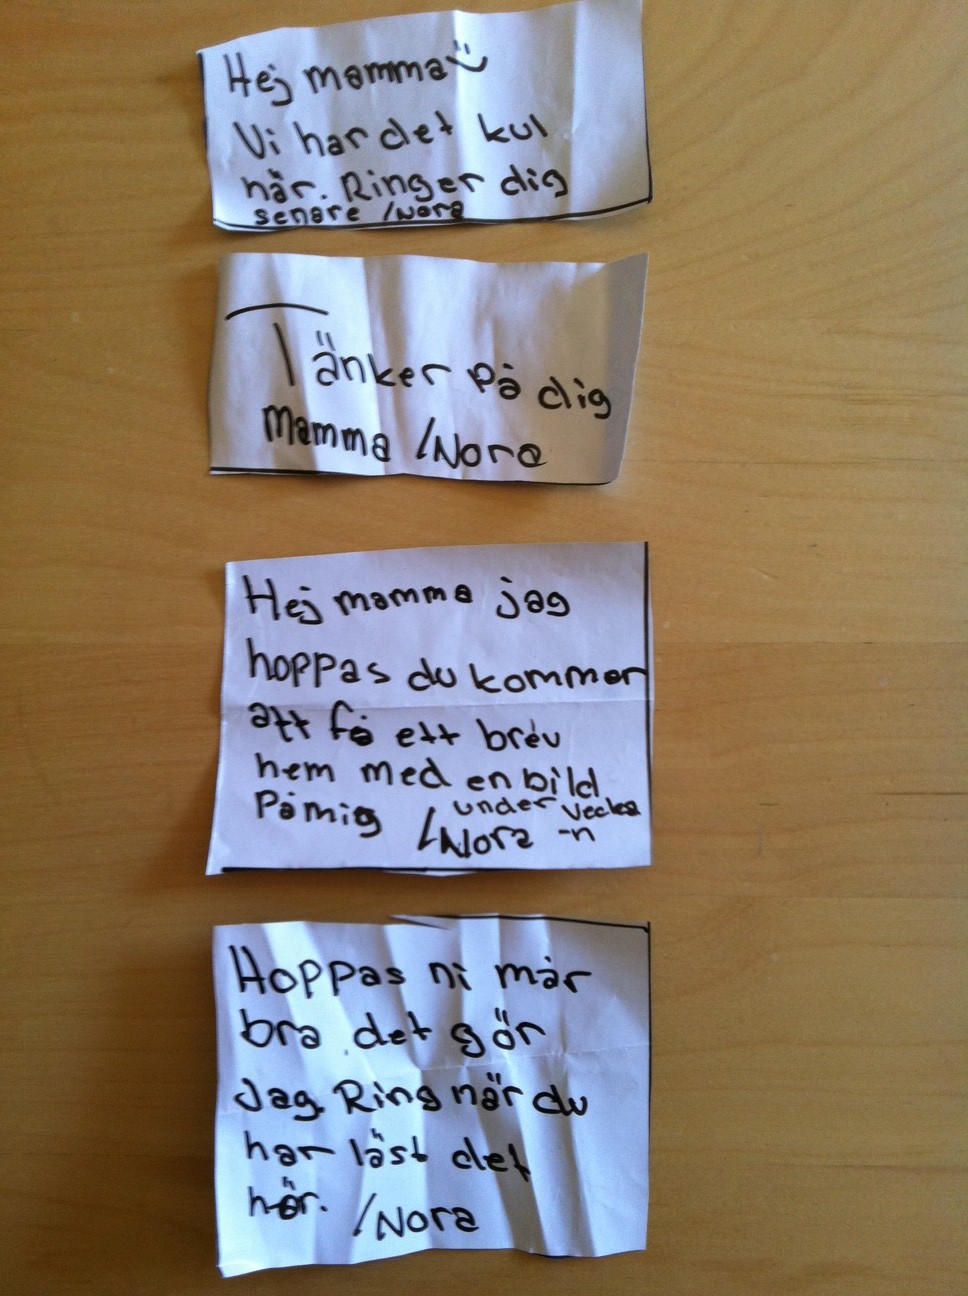 Hej mamma ¨)
Vi har det kul
här. Ringer dig
senare /Nora
Tänker på dig
Mamma /Nora
Hej mamma jag
hoppas du kommer
att få ett brev
hem med en bild
På mig under vecka
/Nora -n
Hoppas ni mår
bra det gör
Jag. Ring när du
har läst det
här. /Nora